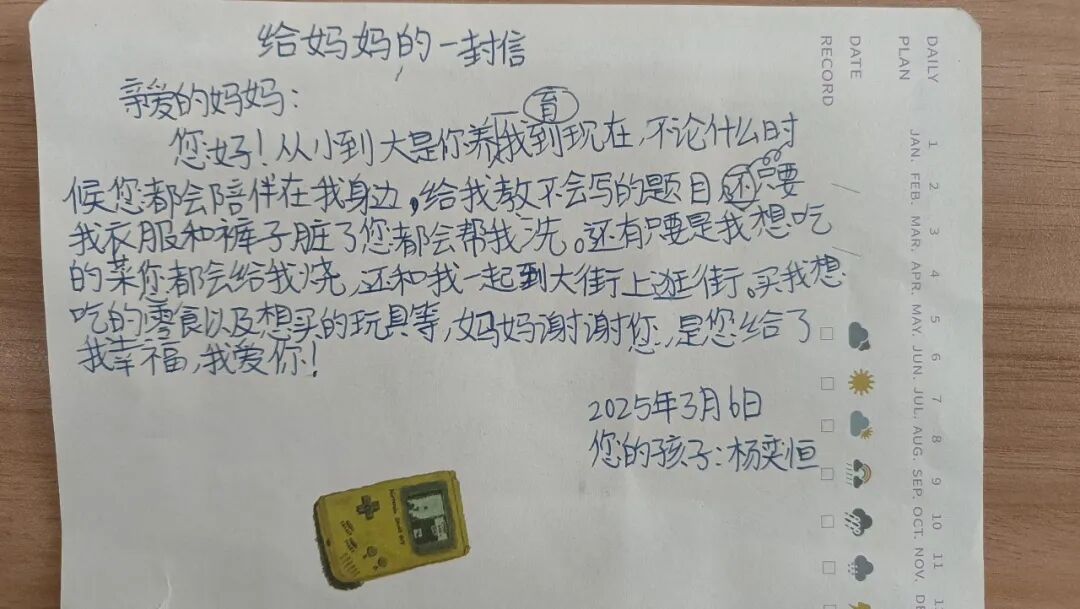 给妈妈的一封信
亲爱的妈妈：
您好！从小到大是你养育我到现在，不论什么时
候您都会陪伴在我身边，给我教不会写的题目还只要
我衣服和裤子脏了您都会帮我洗。还有只要是我想吃
的菜您都会给我烧，还和我一起到大街上逛街。买我想
吃的零食以及想买的玩具等，妈妈谢谢您，是您给了
我幸福，我爱你！
2025年3月6日
您的孩子：杨奕恒
DAILY
PLAN
DATE
RECORD
1 2 3 4 5 6 7 8 9 10 11
JAN. FEB. MAR. APR. MAY. JUN. JUL. AUG. SEP. OCT. NOV.